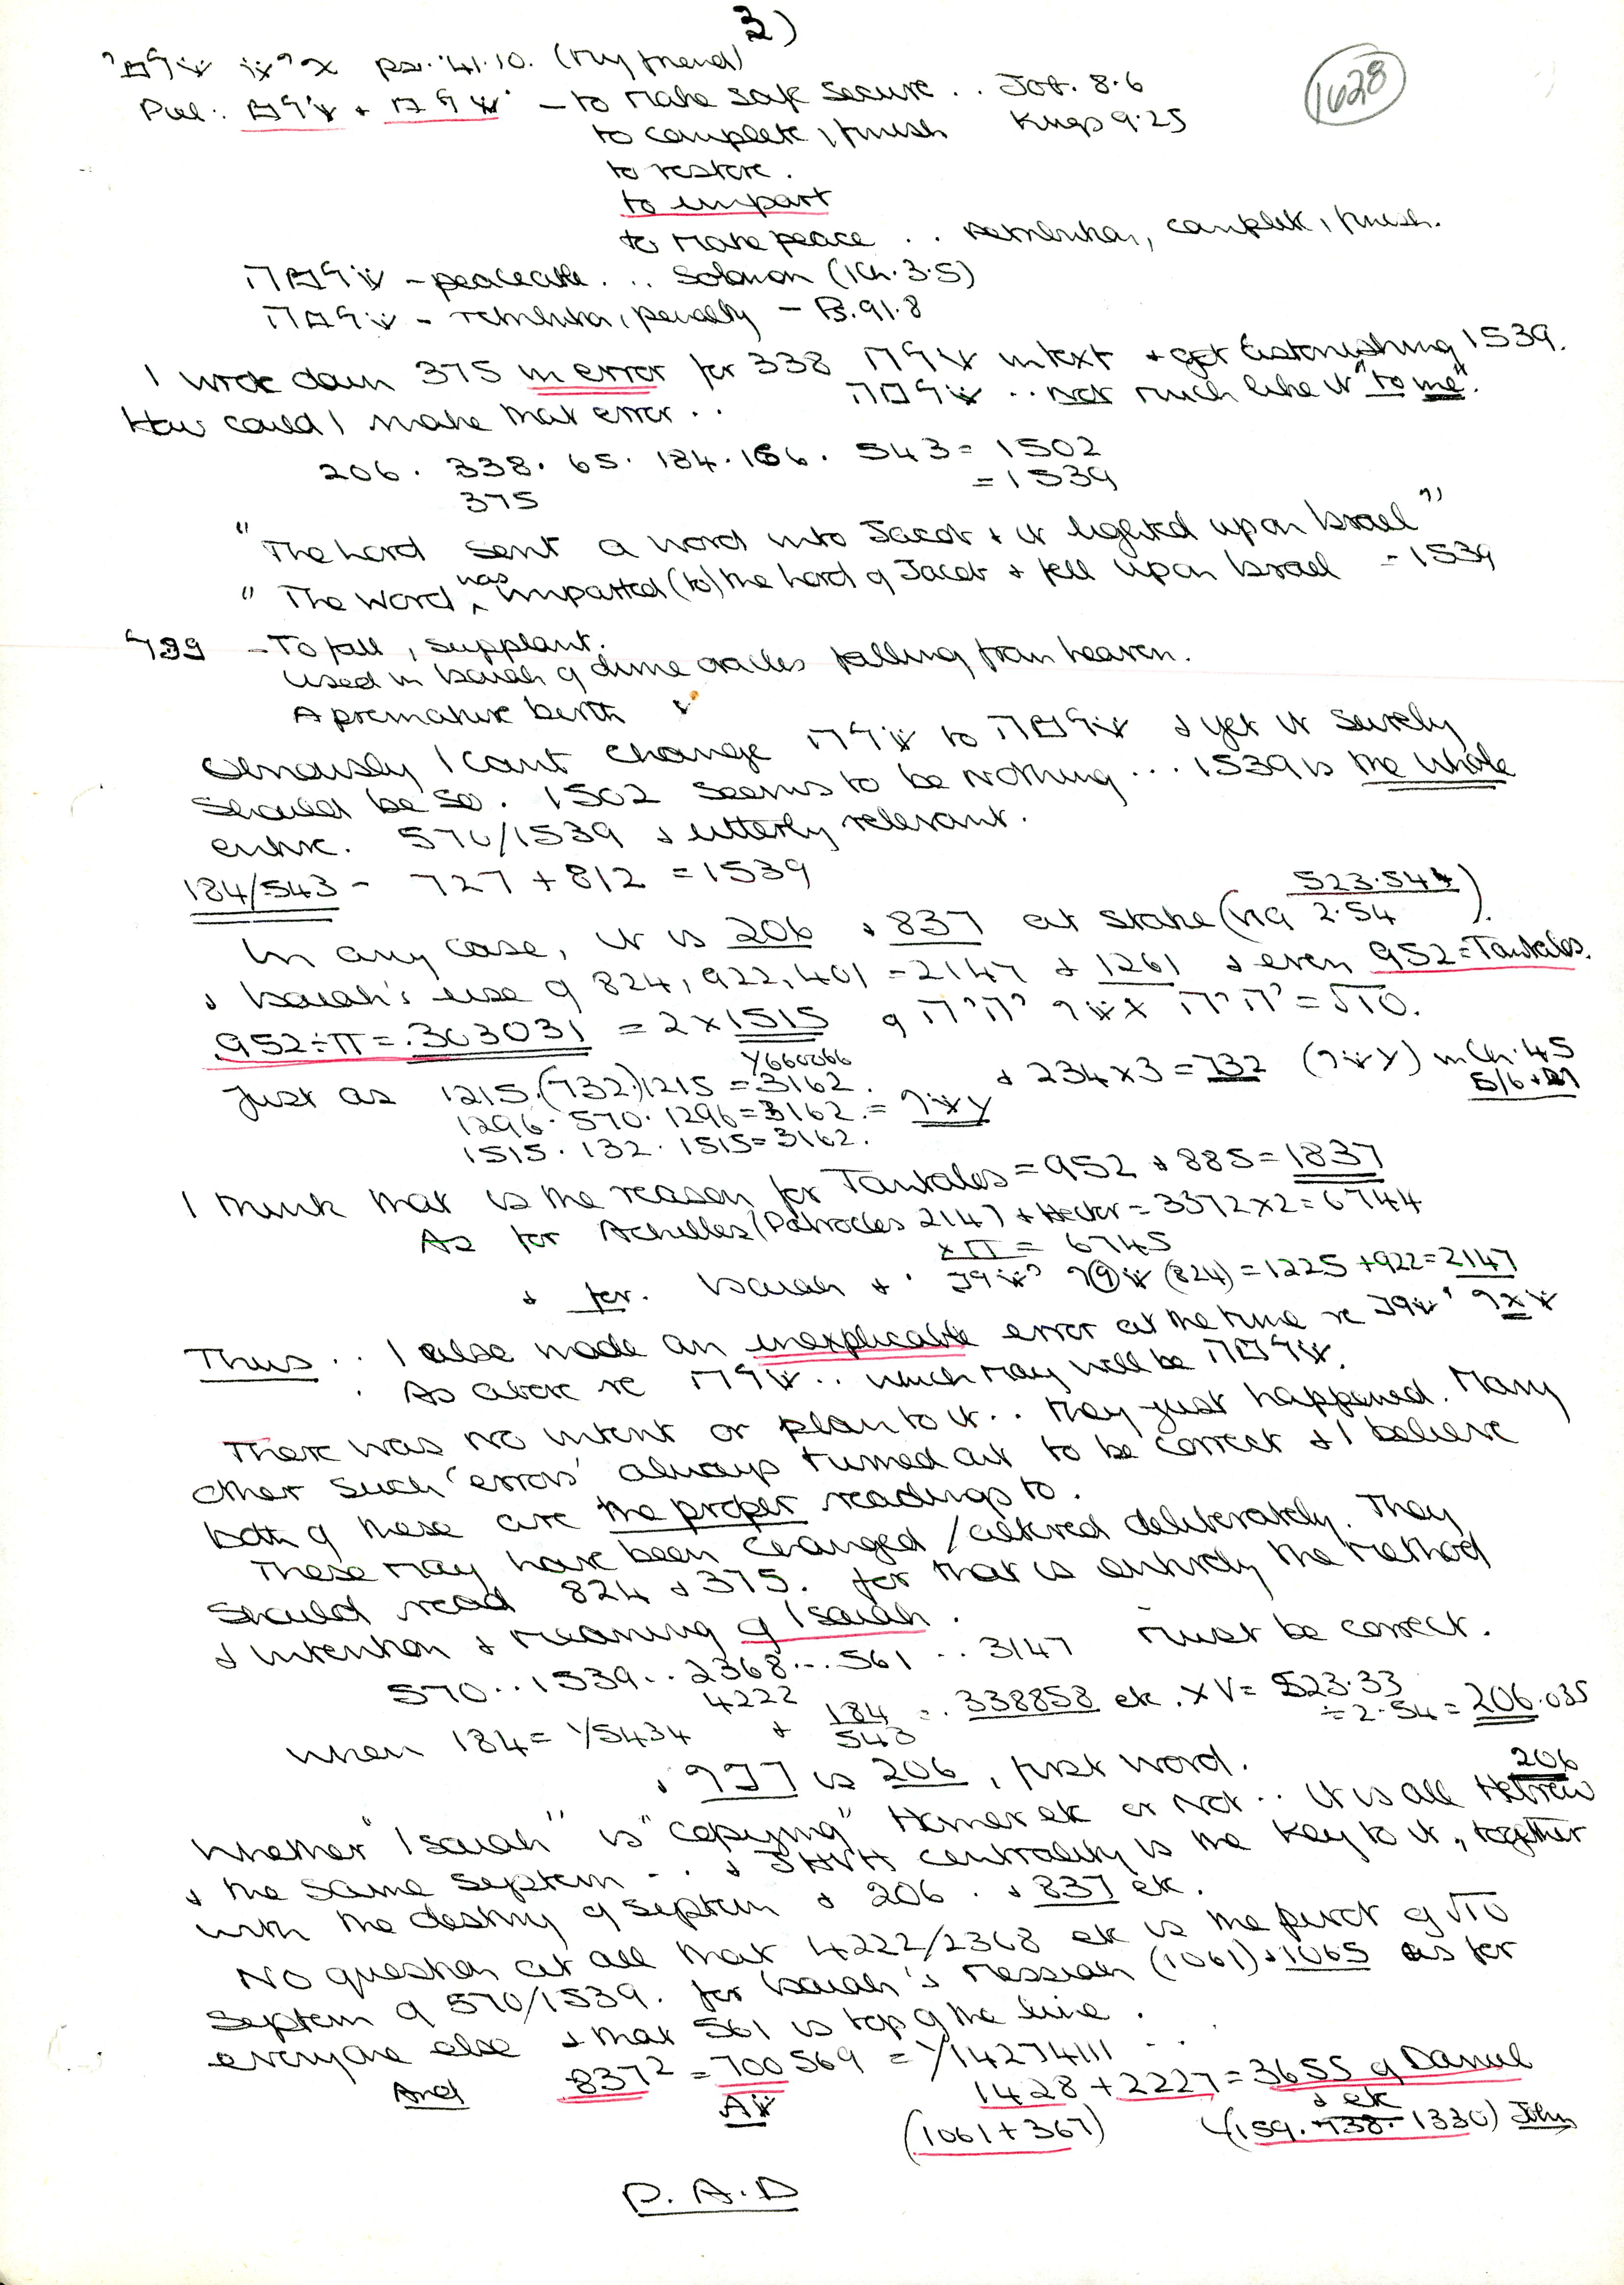 3)
1628
ps. 41.10. (My friend)
Piel: + — to make safe secure .. Job. 8.6
to complete, finish Kings 9.25
to restore.
to impart
to make peace .. retribution, complete, finish.
- peaceable ... Solomon (1Ch. 3.5)
- retribution, penalty - Ps. 91.8
I wrote down 375 in error for 338 in text + get astonishing 1539.
How could I make that error .. .. not much like it "to me".
206. 338. 65. 184. 166. 543 = 1502
375 = 1539
"The Lord sent a word into Jacob + it lighted upon Israel"
" The word was imparted (to) the Lord of Jacob + fell upon Israel = 1539
- To fall, supplant.
Used in Isaiah of divine oracles falling from heaven.
A premature birth
Obviously I can't change to + yet it surely
should be so. 1502 seems to be nothing ... 1539 is the whole
entire. 570/1539 + utterly relevant.
184/543 - 727 + 812 = 1539
In any case, it is 206 + 837 at stake (via 523.544 2.54).
+ Isaiah's use of 824, 922, 401 = 2147 + 1261 + even 952 = Tantalos.
.952 ÷ π = .303031 = 2 x 1515 of = √10.
Y660066
Just as 1215.(732)1215 = 3162. + 234 x 3 = 732 in Ch. 45
1296. 570. 1296 = 3162. =
1515. 132. 1515 = 3162.
I think that is the reason for Tantalos = 952 + 885 = 1837
As for Achilles/Patrocles 2147 + Hector = 3372 x 2 = 6744
x π = 6745
+ for. Isaiah + (824) = 1225 + 922 = 2147
Thus .. I also made an inexplicable error at the time re
. As above re .. which may well be
There was no intent or plan to it .. they just happened. Many
other such 'errors' always turned out to be correct + I believe
both of these are the proper readings to.
These may have been changed / altered deliberately. They
should read 824 + 375. for that is entirely the method
+ intention + meaning of Isaiah.
570 .. 1539 .. 2368 ... 561 .. 3147 must be correct.
4222
when 184 = Y5434 + 184/543 = .338858 etc. x V = 523.33
÷ 2.54 = 206.035
+ is 206, first word.
206
Whether "Isaiah" is "copying" Homer etc or not .. it is all Hebrew
+ the same system .. + JHVH centrality is the key to it, together
with the destiny of system + 206. + 837 etc.
No question at all that 4222/2368 etc is the pivot of √10
system of 570/1539. for Isaiah's Messiah (1061) + 1065 as for
everyone else + that 561 is top of the line.
And 837² = 700569 = Y14274111
1428 + 2227 = 3655 of Daniel
+ etc
(1061 + 367) (159. 738. 1330) John
P.A.D